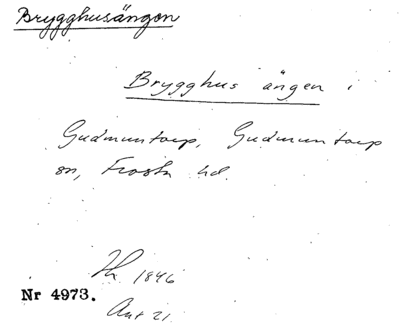 Brygghusängen
Brygghus ängen i
Gudmuntorp, Gudmuntorp
sn, Frosta hd.
1846
Nr 4973.
Akt 21